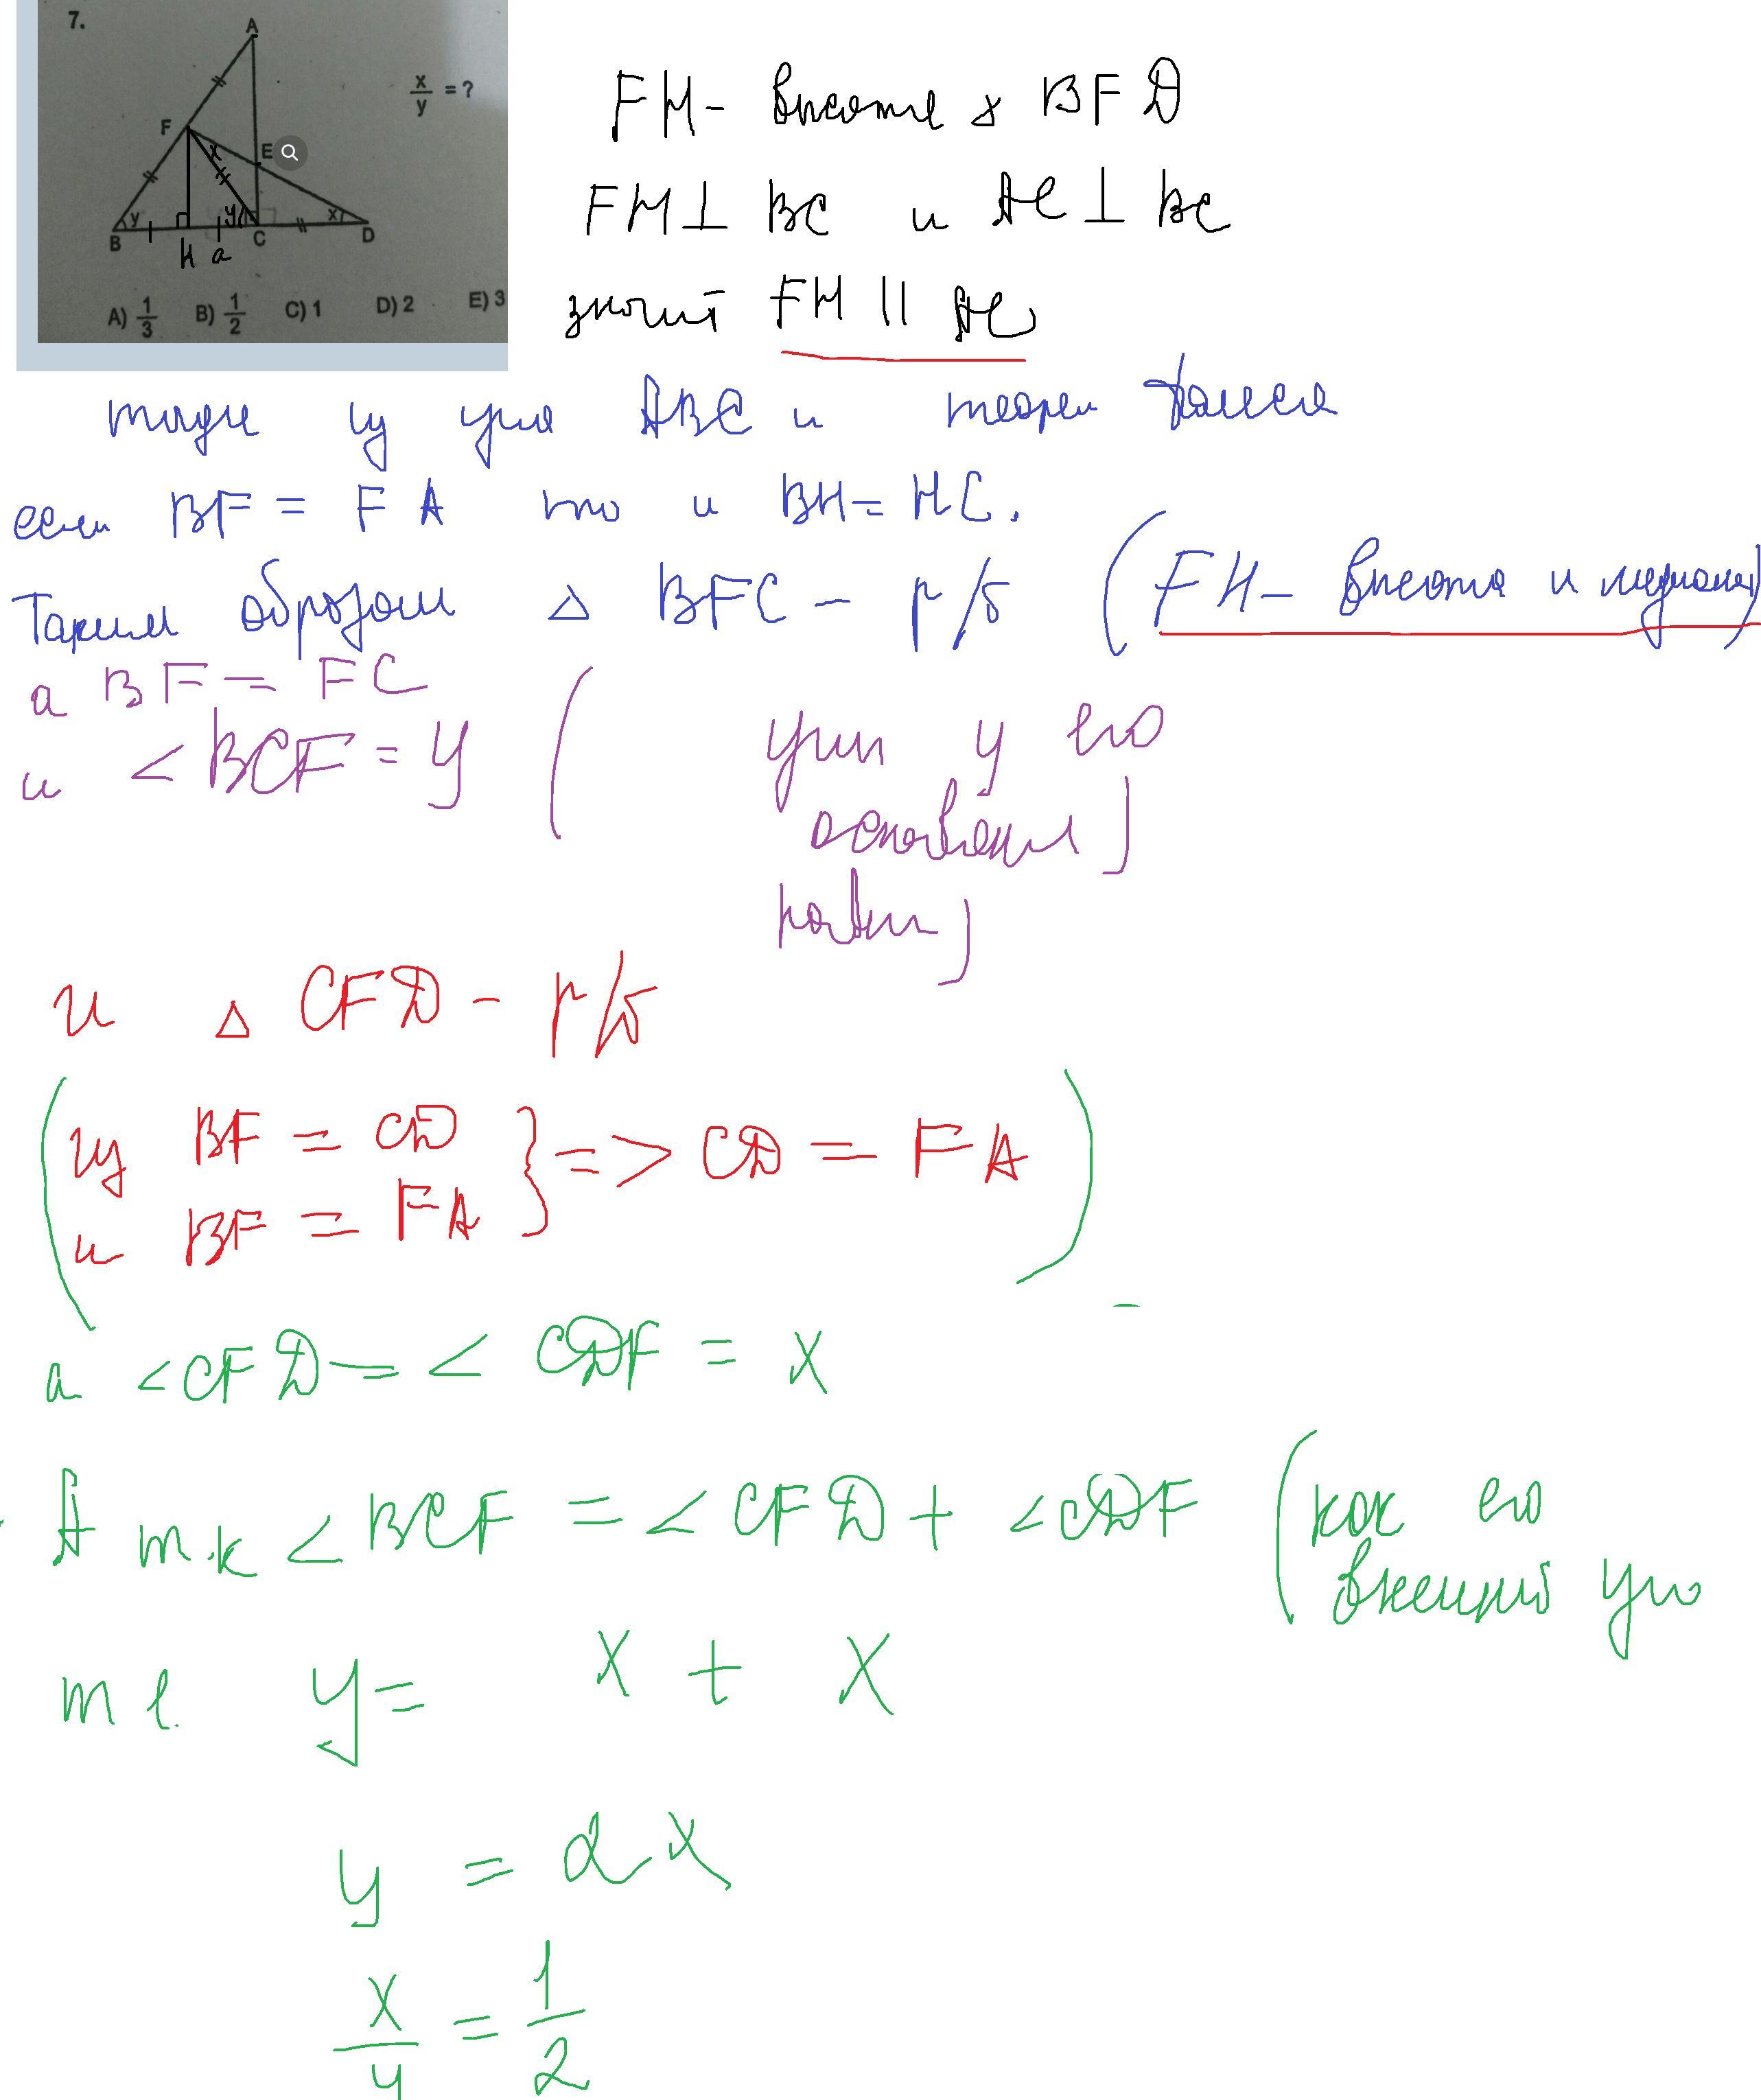 7.
A
x/y = ?
F
x
E
y
y
x
B
H
a
C
D
A) 1/3 B) 1/2 C) 1 D) 2 E) 3
FH - высота △ BFD
FH ⊥ BC и AC ⊥ BC
значит FH || AC
тогда из угла ABC и теорем Фалеса
если BF = FA то и BH = HC.
Таким образом △ BFC - р/б (FH - высота и медиана)
а BF = FC
и <BCF = y ( углы у его
основания)
равны)
и △ CFD - р/б
(из BF = CD
и BF = FA } => CD = FA)
а <CFD = <CDF = x
А т.к <BCF = <CFD + <CDF (как его
внешний угол
т е. y = x + x
y = 2x
x/y = 1/2